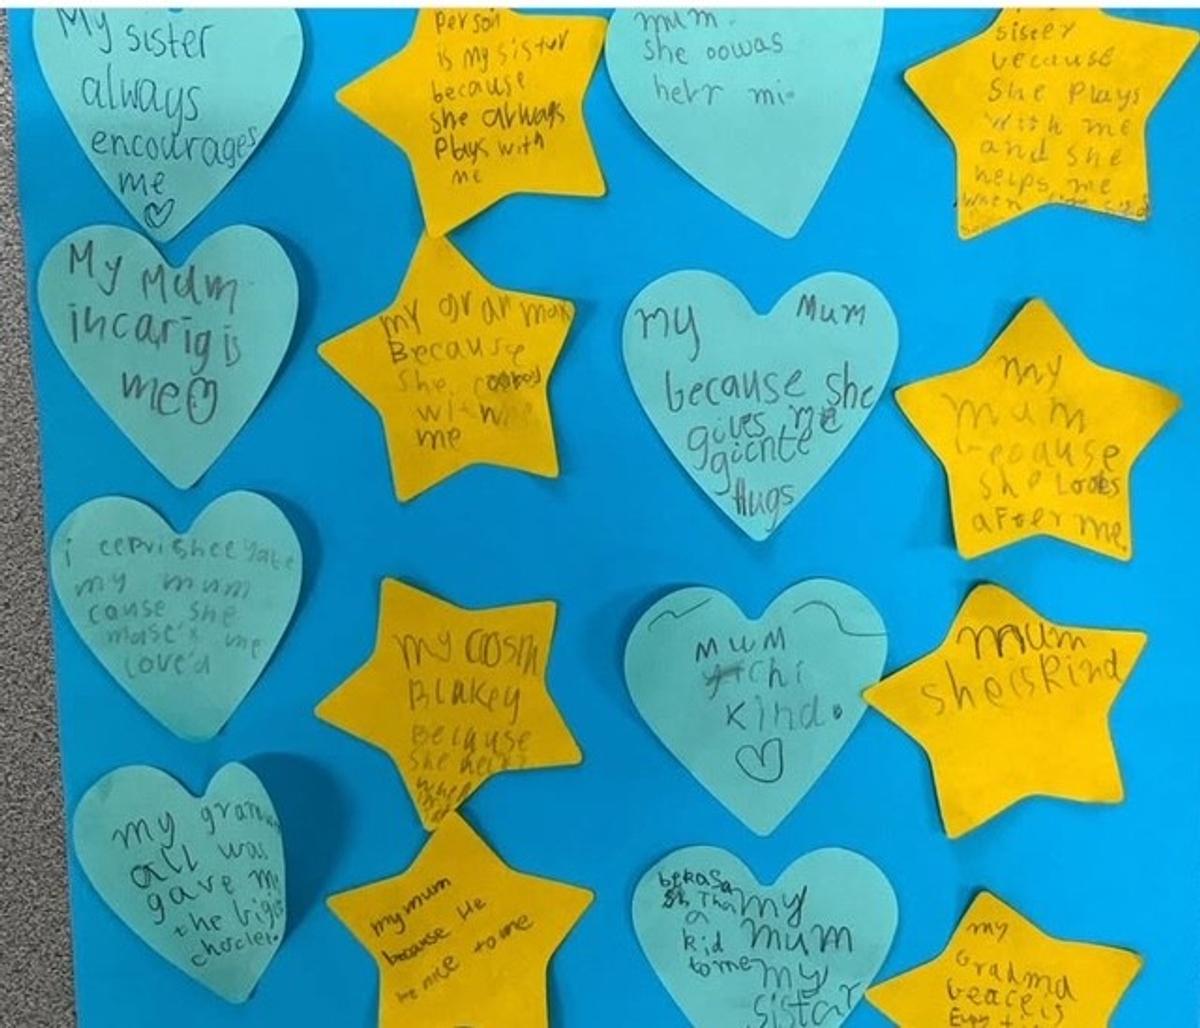 My sister
always
encourages
me
person
is my sister
because
she always
plays with
me
mum.
she oowas
helr mi.
sister
because
She Plays
with me
and she
helps me
when
My Mum
incarig is
me
my gran
Because
She
with
me
my Mum
because she
gives me
gicnte
Hugs
my
mum
because
she Looks
after me.
i
my mum
cause she
mase's me
love'd
my cosin
BLakey
Because
she
MUM
chi
kind.
mum
she is kind
my gran
all was
gave me
the bigis
choclet.
my mum
because He
he nice to me
bekasa
a
kid
to me
my
mum
my
sistar
my
Gradma